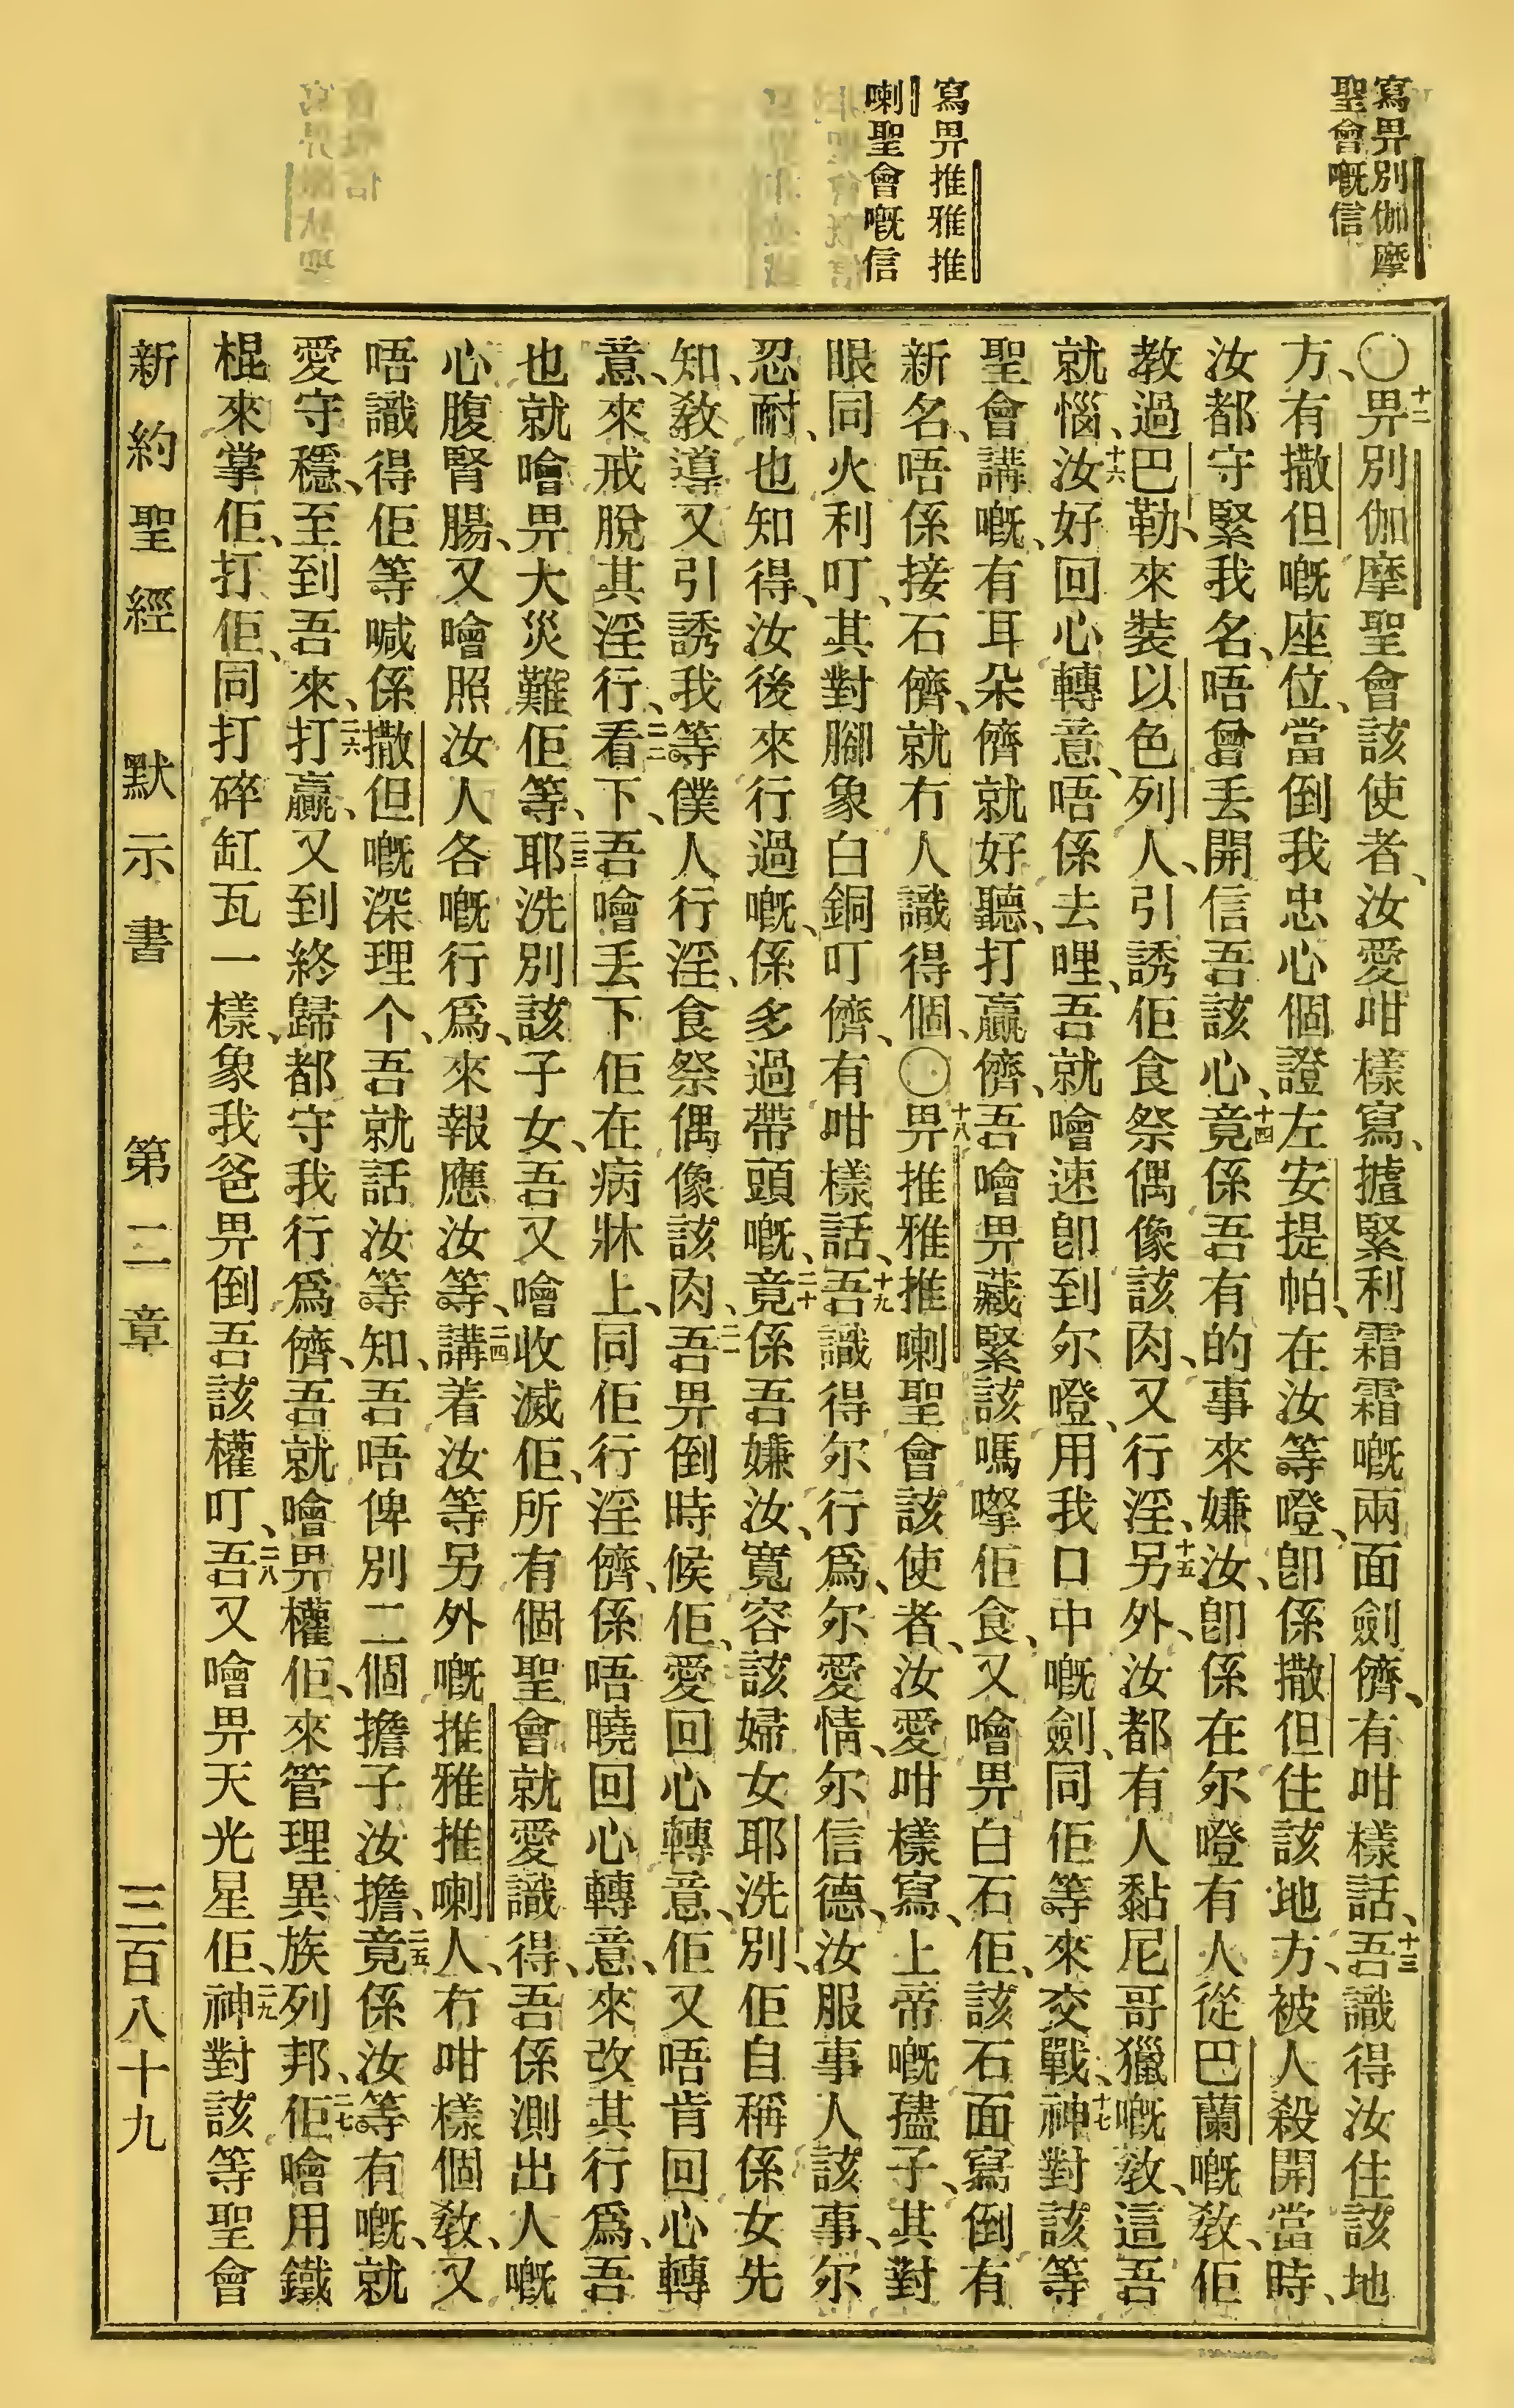 寫畀別伽摩
聖會嘅信
寫畀推雅推
喇聖會嘅信
〇十二畀別伽摩聖會該使者、汝愛咁樣寫、攎緊利霜霜嘅兩面劍儕、有咁樣話、十三吾識得汝住該地
方、有撒但嘅座位、當倒我忠心個證左安提帕、在汝等噔、卽係撒但住該地方、被人殺開當時、
汝都守緊我名、唔曾丢開信吾該心、十四竟係吾有的事來嫌汝、卽係在尔噔有人從巴蘭嘅教、佢
教過巴勒、來裝以色列人、引誘佢食祭偶像該肉、又行淫、十五另外、汝都有人黏尼哥獵嘅教、這吾
就惱、十六汝好回心轉意、唔係去哩、吾就噲速卽到尔噔、用我口中嘅劍、同佢等來交戰、十七神對該等
聖會講嘅、有耳朵儕就好聽、打贏儕、吾噲畀藏緊該嗎嗱佢食、又噲畀白石佢、該石面寫倒有
新名、唔係接石儕、就冇人識得個、〇十八畀推雅推喇聖會該使者、汝愛咁樣寫、上帝嘅孻子、其對
眼同火利叮、其對腳象白銅叮儕、有咁樣話、十九吾識得尔行爲、尔愛情、尔信德、汝服事人該事、尔
忍耐、也知得、汝後來行過嘅、係多過帶頭嘅、二十竟係吾嫌汝、寬容該婦女耶洗別、佢自稱係女先
知、教導又引誘我等僕人行淫、食祭偶像該肉、二一吾畀倒時候佢、愛回心轉意、佢又唔肯回心轉
意、來戒脫其淫行、二二看下、吾噲丢下佢在病牀上、同佢行淫儕、係唔曉回心轉意、來改其行爲、吾
也就噲畀大災難佢等、二三耶洗別該子女、吾又噲收滅佢、所有個聖會就愛識得、吾係測出人嘅
心腹腎腸、又噲照汝人各嘅行爲、來報應汝等、二四講着汝等另外嘅推雅推喇人、冇咁樣個教、又
唔識得佢等喊係撒但嘅深理个、吾就話汝等知、吾唔俾別二個擔子汝擔、二五竟係汝等有嘅、就
愛守穩、至到吾來、二六打贏、又到終歸都守我行爲儕、吾就噲畀權佢、來管理異族列邦、二七佢噲用鐵
棍來掌佢、打佢、同打碎缸瓦一樣、象我爸畀倒吾該權叮、二八吾又噲畀天光星佢、二九神對該等聖會
新約聖經 默示書 第二章 三百八十九